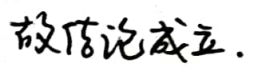 故结论成立.